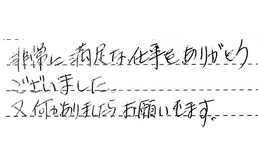 非常に満足な仕事をありがとう
ございました
又何かありましたらお願いします。